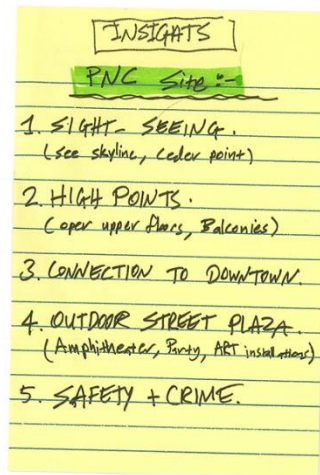 INSIGHTS
PNC Site :-
1. SIGHT- SEEING.
(see skyline, Ceder point)
2. HIGH POINTS.
(oper upper floors, Balconies)
3. CONNECTION TO DOWNTOWN.
4. OUTDOOR STREET PLAZA.
(Amphitheater, Party, ART installations)
5. SAFETY + CRIME.